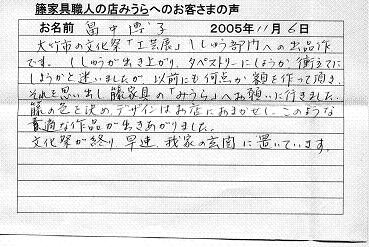 藤家具職人の店みうらへのお客さまの声
お名前 畠中 博子 2005年11月6日
大竹市の文化祭「工芸展」ししゅう部門への出品作
です。ししゅうが出き上がり、タペストリーにしようか衝立てに
しようかと迷いましたが、以前にも何点か額を作って頂き、
それを思い出し藤家具の「みうら」へお願いに行きました。
藤の色を決め、デザインはお店におまかせし、このような
素適な作品が出きあがりました。
文化祭が終り 早速、我家の玄関に置いています。